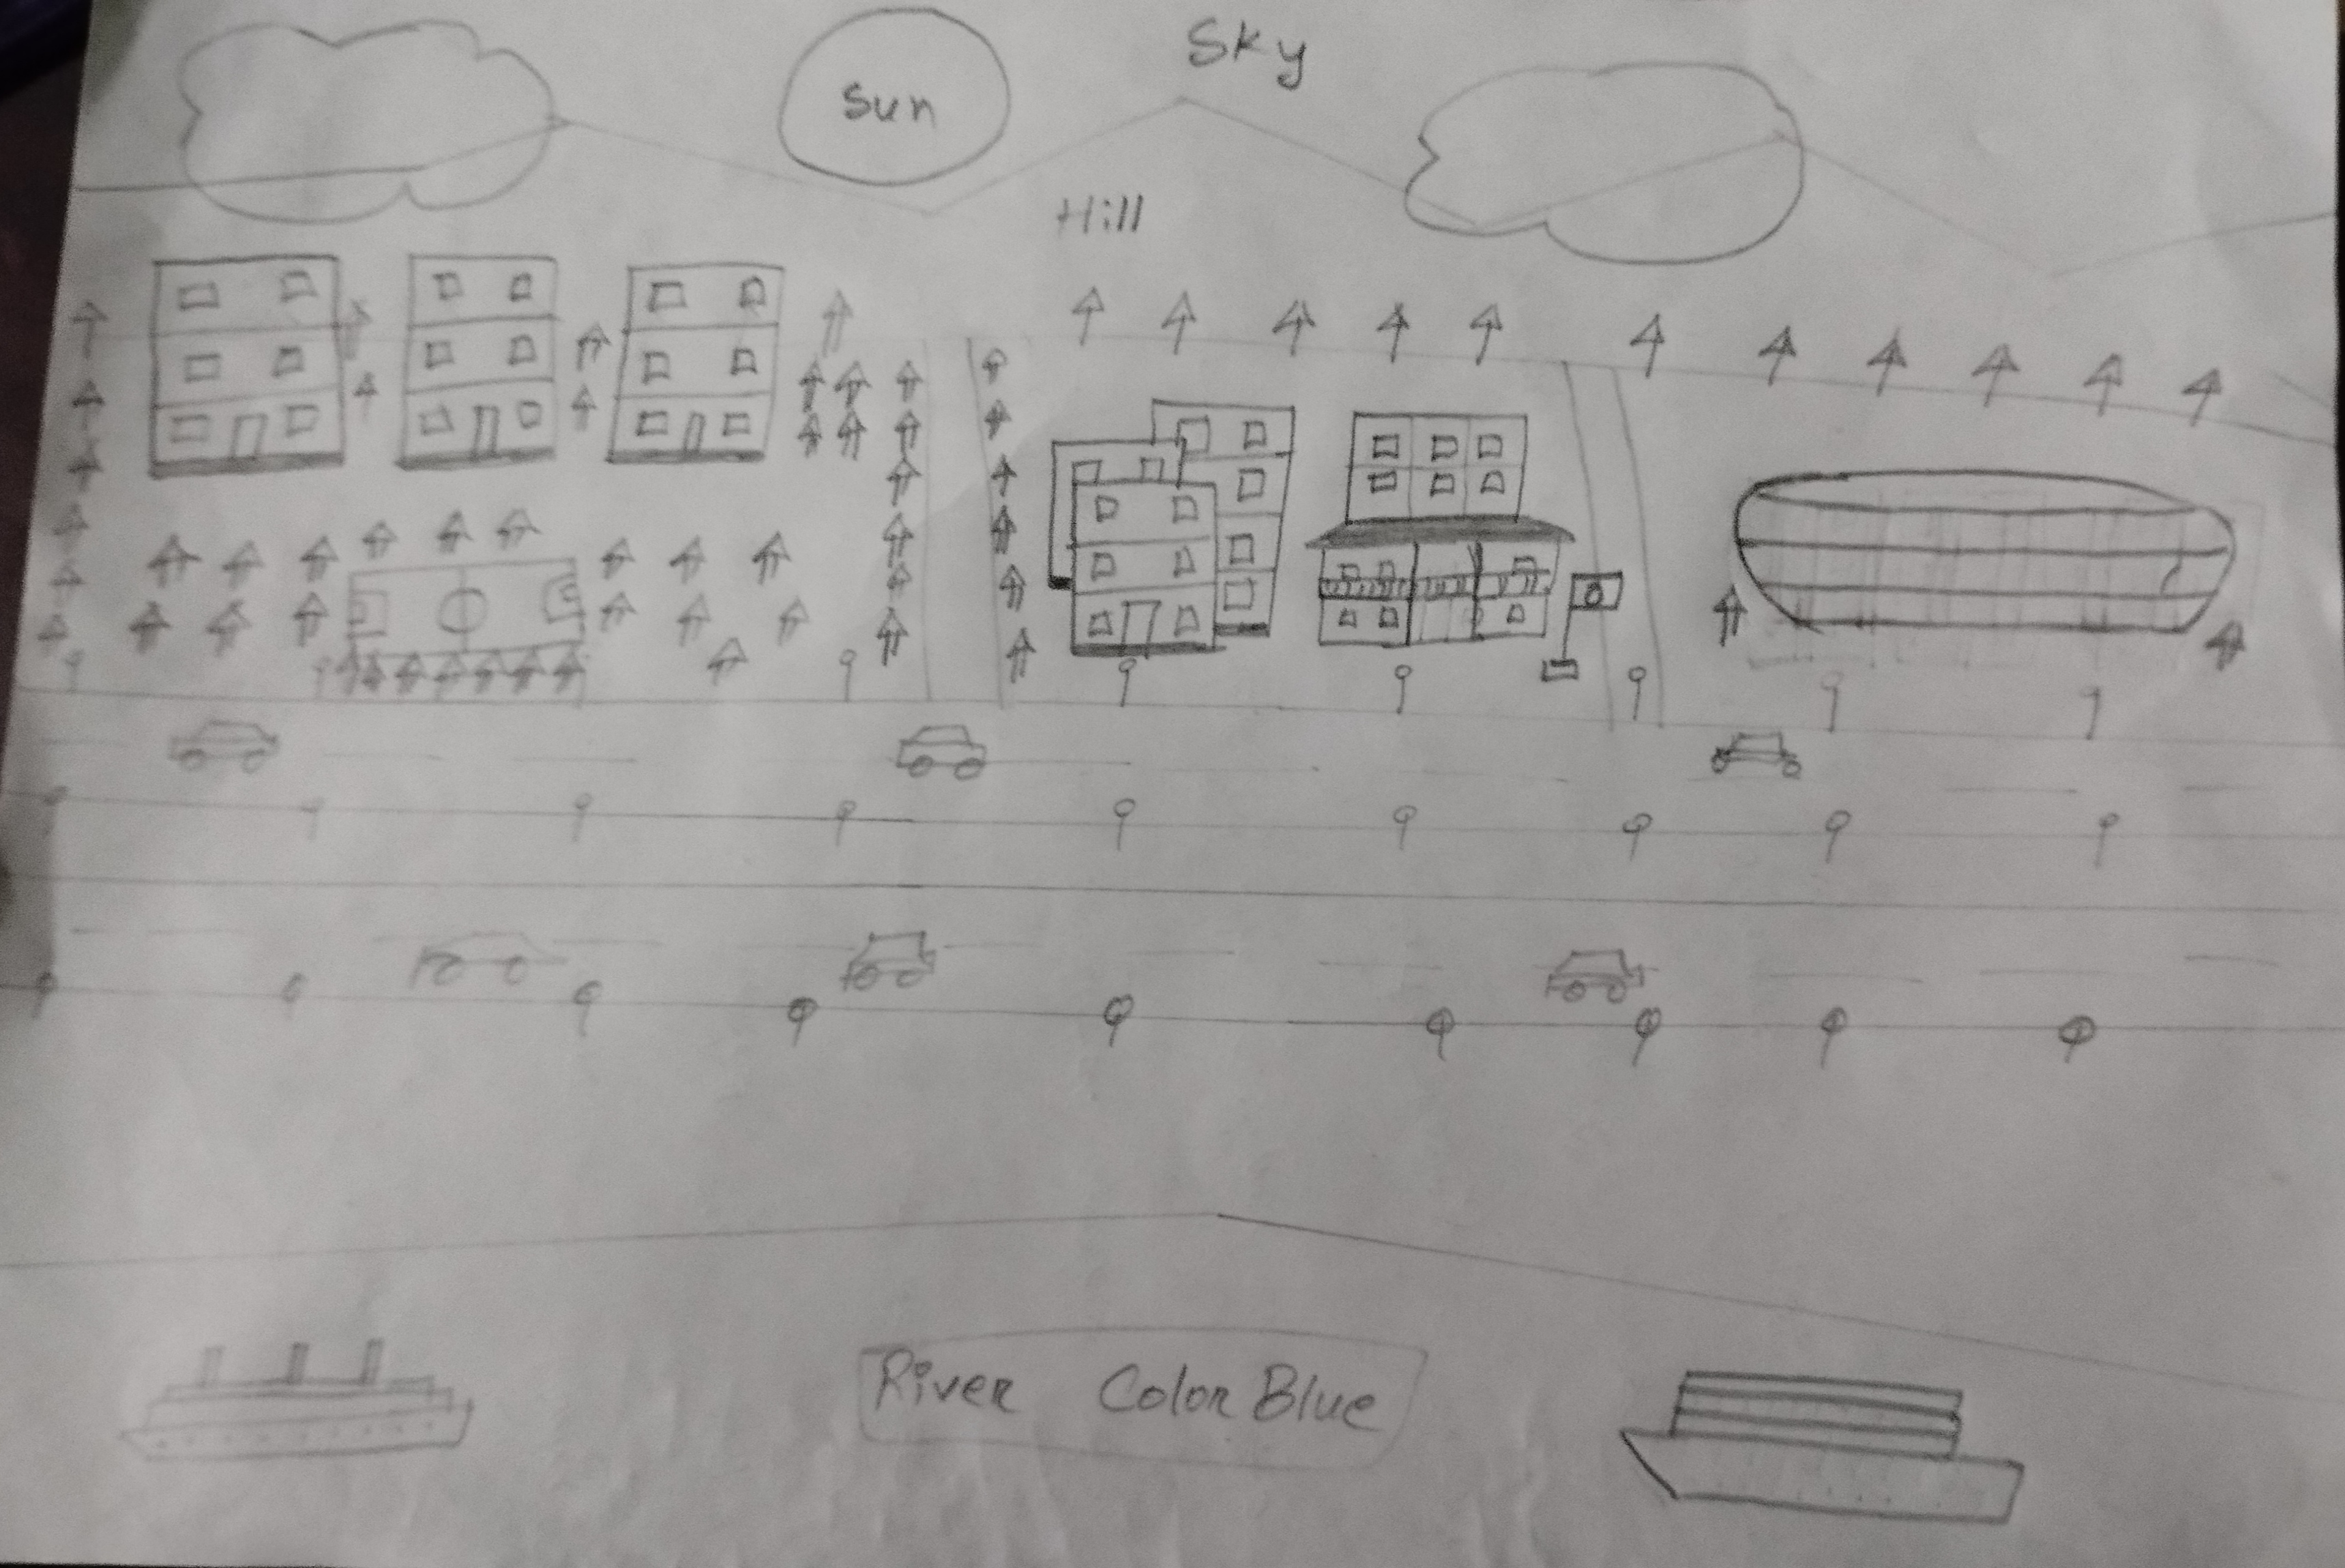 Sky
Sun
Hill
River Color Blue